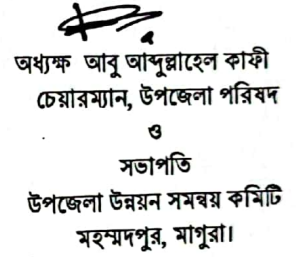 অধ্যক্ষ আবু আব্দুল্লাহেল কাফী
চেয়ারম্যান, উপজেলা পরিষদ
ও
সভাপতি
উপজেলা উন্নয়ন সমন্বয় কমিটি
মহম্মদপুর, মাগুরা।